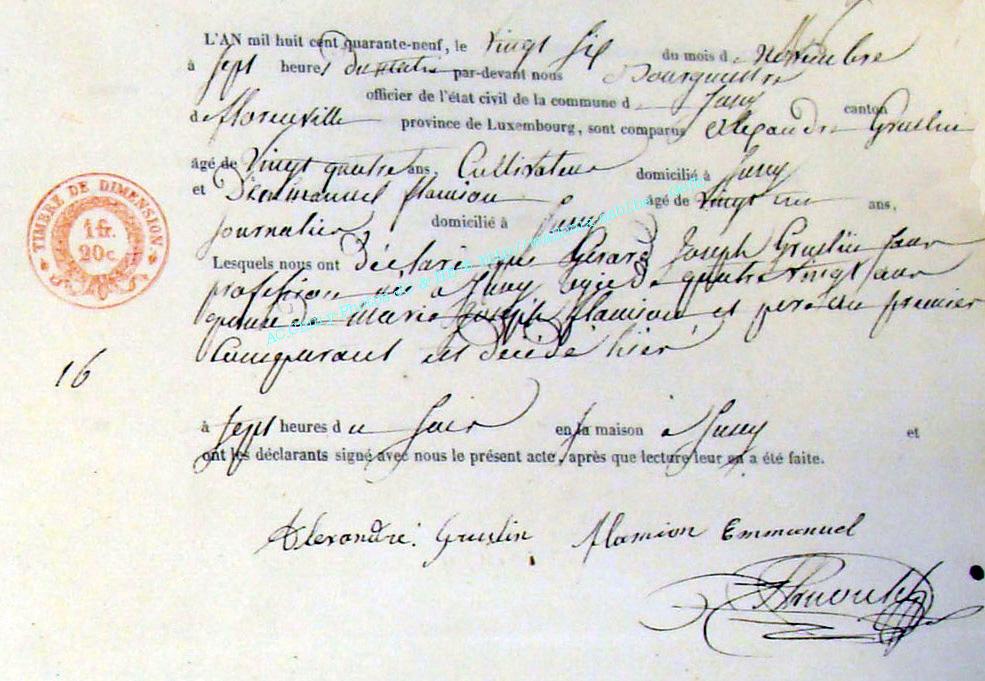 L'AN mil huit cent quarante-neuf, le vingt six du mois de Novembre
à sept heures du matin par-devant nous Bourguestre
officier de l'état civil de la commune de Juny canton
de florenville province de Luxembourg, sont comparus Alexandre Gruslin
âgé de vingt quatre ans, Cultivateur domicilié à Juny
et D'emmanuel flamion âgé de vingt ans,
journalier, domicilié à Juny
Lesquels nous ont déclaré que Gérard Joseph Gruslin sans
profession né à Juny agé de quatre vingt ans
époux de marie Joseph flamion et pere du premier
Comparant est décédé hier
à sept heures du soir en sa maison à Juny et
ont les déclarants signé avec nous le présent acte, après que lecture leur en a été faite.
Alexandre. Gruslin flamion Emmanuel
TIMBRE DE DIMENSION.
1 fr.
20c.
16